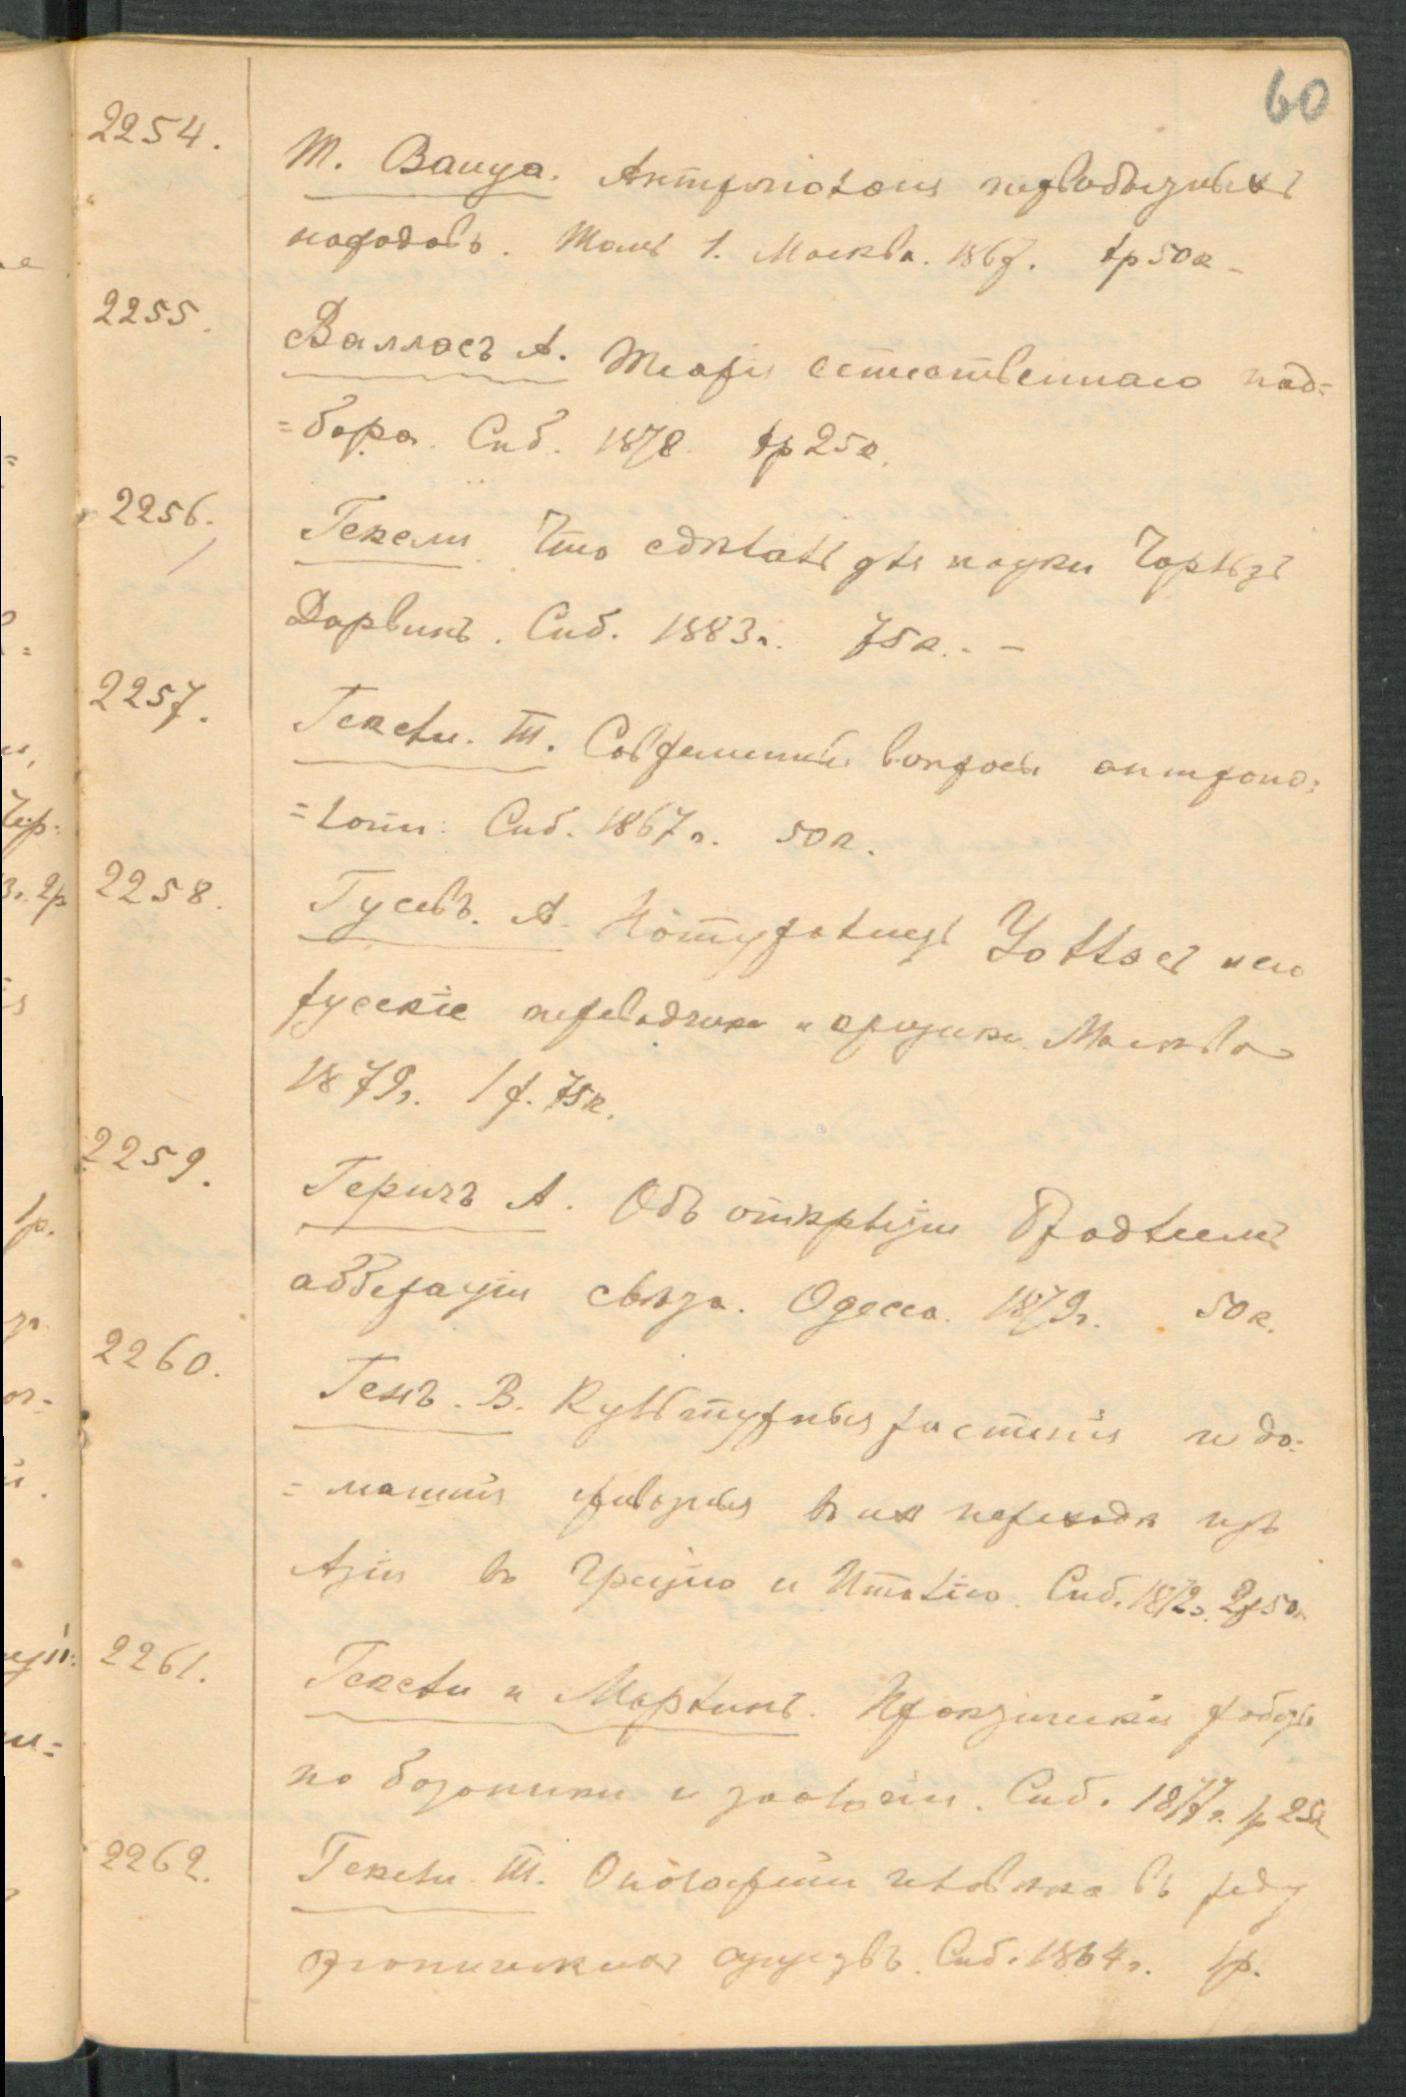 60
2254. Т. Вайца. Антропологія первобытныхъ
народовъ. Томъ 1. Москва. 1867. 1р 50к -
2255. Валласъ А. Теорія естественнаго под=
=бора. Спб. 1878. 1р 25к.
2256. Гексли. Что сдѣлалъ для науки Чарльзъ
Дарвинъ. Спб. 1883г. 75к. -
2257. Гексли. Т. Современные вопросы антропо=
=логіи. Спб. 1867г. 50к.
2258. Гусевъ. А. Натуралистъ Уоллесъ и его
русскіе переводчики и критики. Москва
1879г. 1р. 75к.
2259. Геричъ А. Объ открытіи Брадлеемъ
абберраціи свѣта. Одесса. 1879г. 50к.
2260. Генъ. В. Культурныя растенія и до=
=машнія животныя въ их переходѣ изъ
Азіи въ Грецію и Италію. Спб. 1872г. 2р 50к
2261. Гексли и Мартинъ. Практическія работы
по ботаники и зоологіи. Спб. 1877г. 1р 25к
2262. Гексли. Т. О положеніи человѣка въ ряду
органическихъ существъ. Спб. 1864г. 1р.